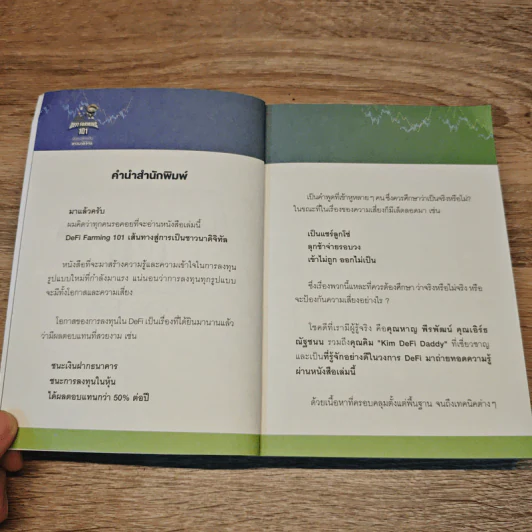 DEFI FARMING
101
คำนำสำนักพิมพ์
มาแล้วครับ
ผมคิดว่าทุกคนรอคอยที่จะอ่านหนังสือเล่มนี้
DeFi Farming 101 เส้นทางสู่การเป็นชาวนาดิจิทัล
หนังสือที่จะมาสร้างความรู้และความเข้าใจในการลงทุน
รูปแบบใหม่ที่กำลังมาแรง แน่นอนว่าการลงทุนทุกรูปแบบ
จะมีทั้งโอกาสและความเสี่ยง
โอกาสของการลงทุนใน DeFi เป็นเรื่องที่ได้ยินมานานแล้ว
ว่ามีผลตอบแทนที่สวยงาม เช่น
ชนะเงินฝากธนาคาร
ชนะการลงทุนในหุ้น
ได้ผลตอบแทนกว่า 50% ต่อปี
เป็นคำพูดที่เข้าหูหลาย ๆ คน ซึ่งควรศึกษาว่าจริงหรือไม่?
ในขณะที่ในเรื่องของความเสี่ยงก็มีเล็ดลอดมา เช่น
เป็นแชร์ลูกโซ่
ลูกช้าจ่ายรอบวง
เข้าไม่ถูก ออกไม่เป็น
ซึ่งเรื่องพวกนี้แหละที่ควรต้องศึกษา ว่าจริงหรือไม่จริง หรือ
จะป้องกันความเสี่ยงอย่างไร ?
โชคดีที่เรามีผู้รู้จริง คือคุณหาญ พีรพัฒน์ คุณเอิร์ธ
ณัฐชนน รวมถึงคุณคิม "Kim DeFi Daddy" ที่เชี่ยวชาญ
และเป็นที่รู้จักอย่างดีในวงการ DeFi มาถ่ายทอดความรู้
ผ่านหนังสือเล่มนี้
ด้วยเนื้อหาที่ครอบคลุมตั้งแต่พื้นฐาน จนถึงเทคนิคต่าง ๆ